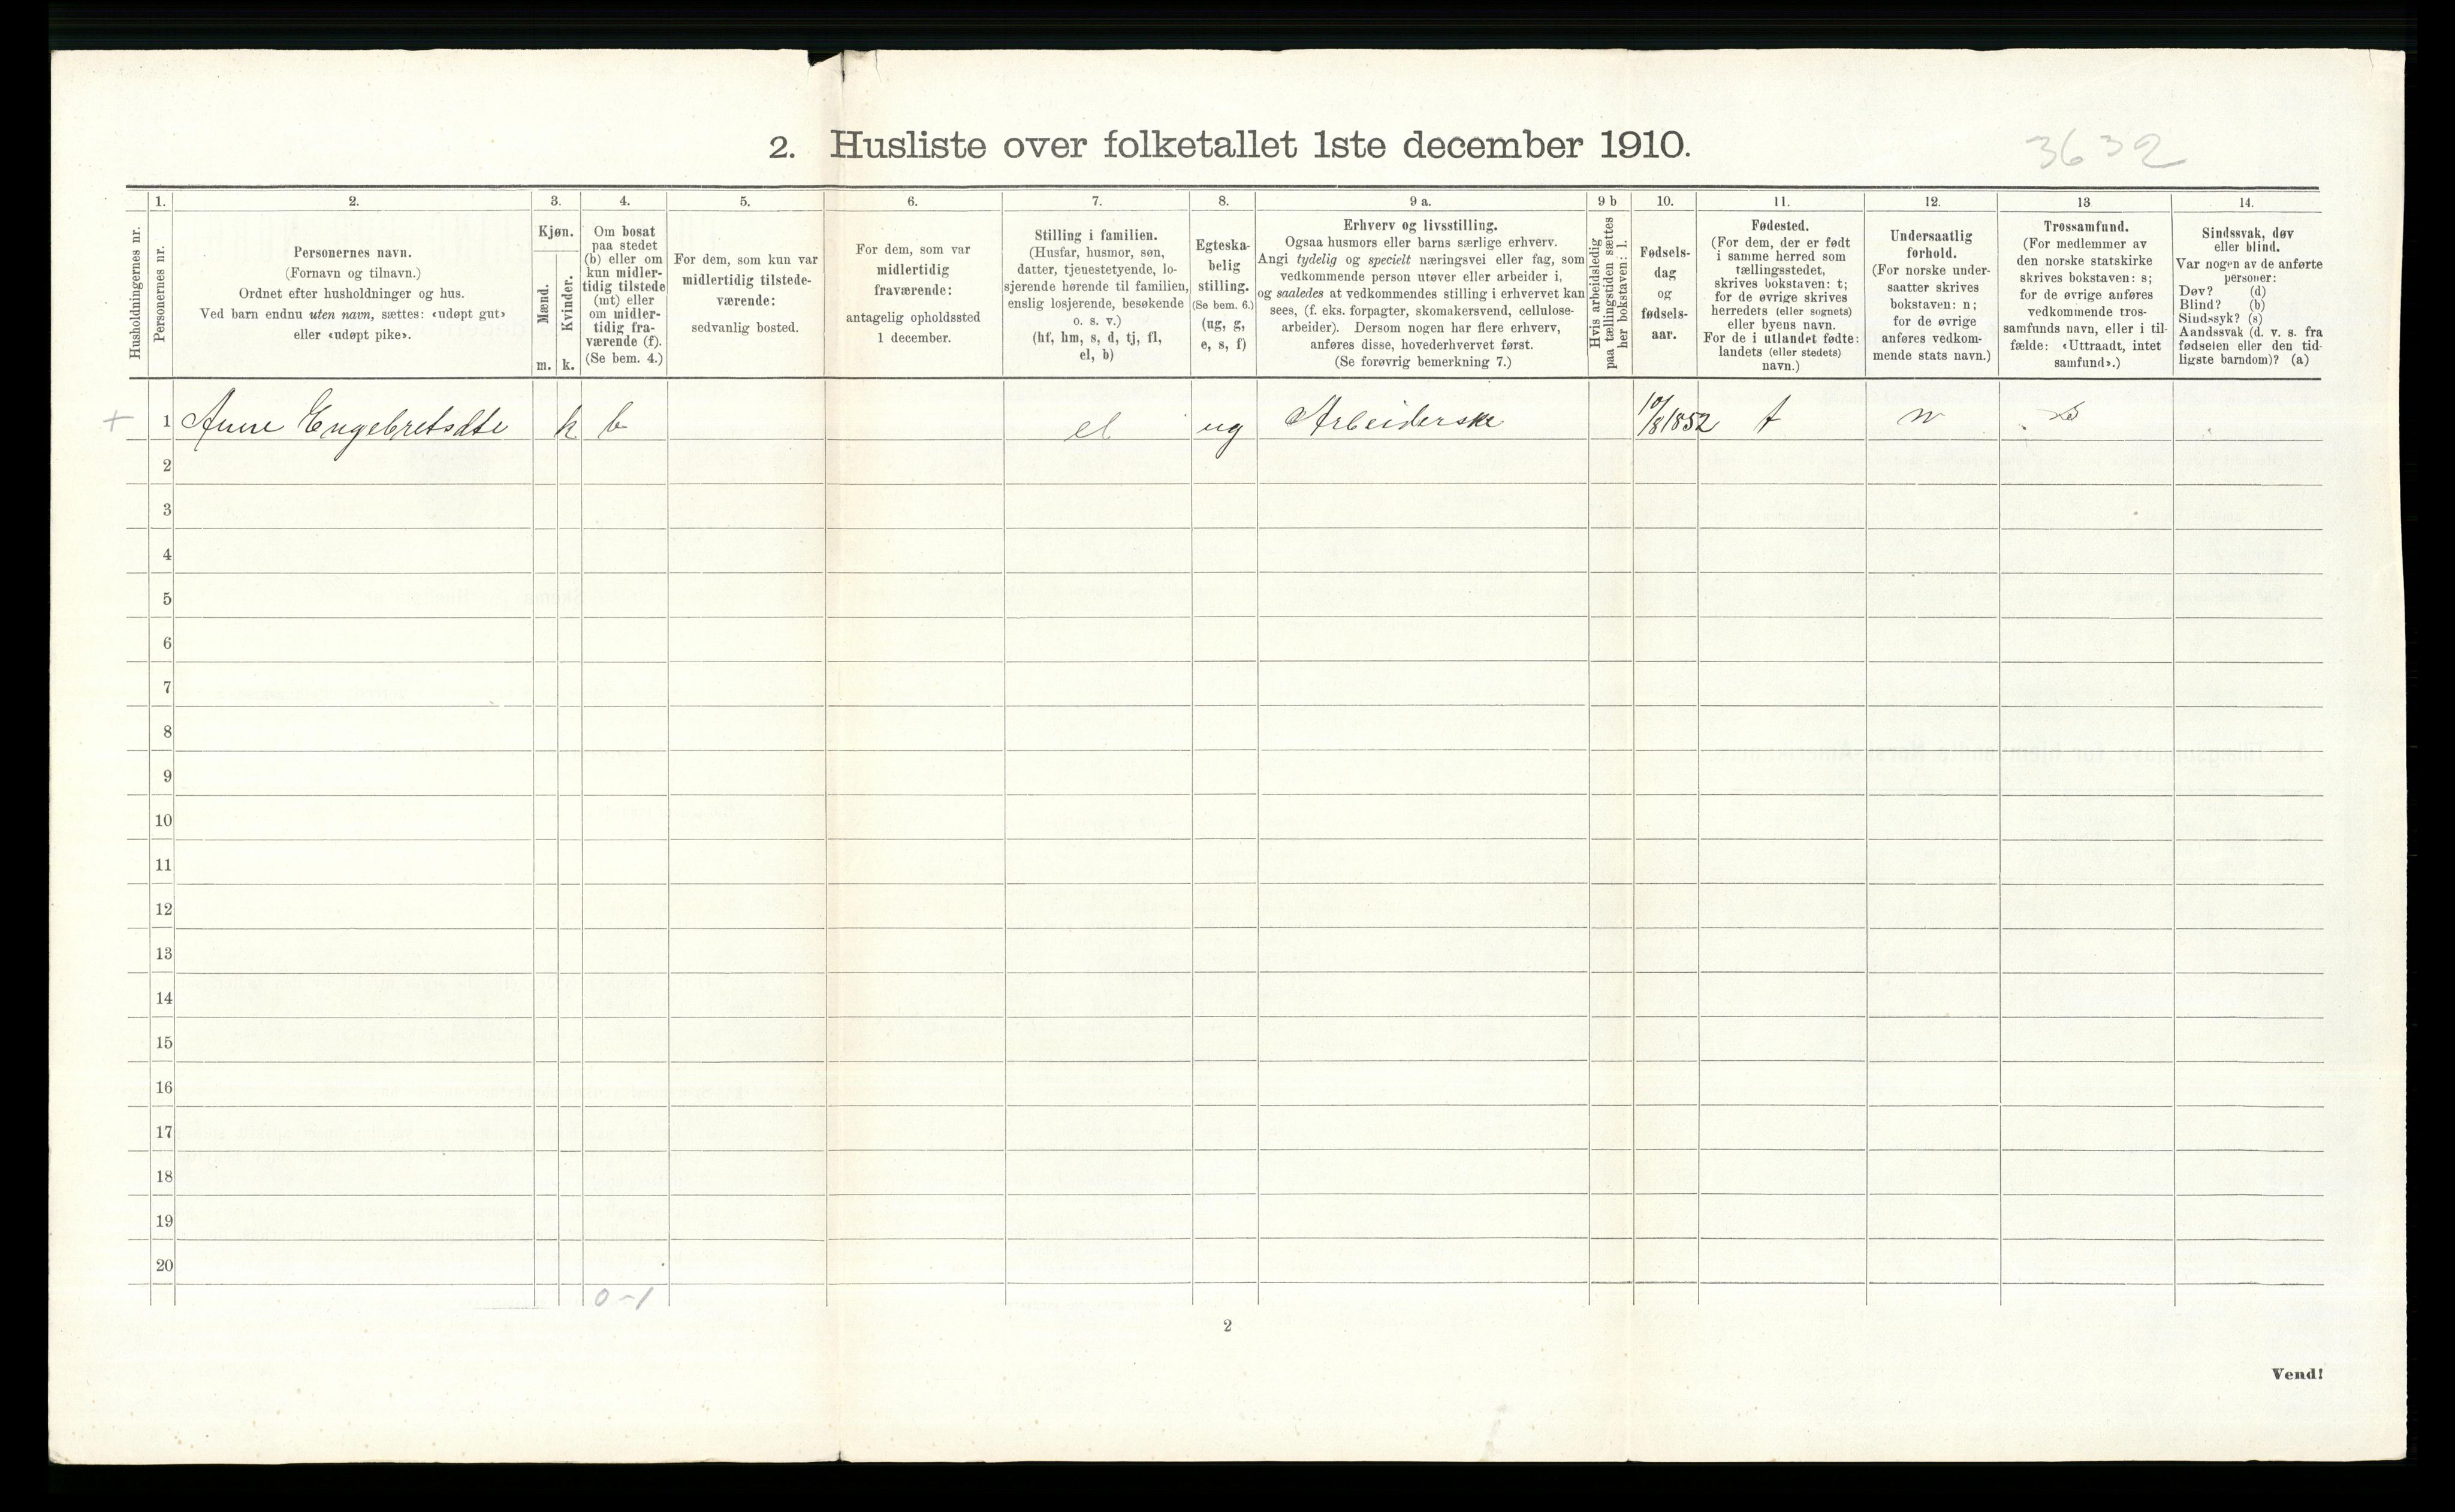 2. Husliste over folketallet 1ste december 1910.
3632
1. 2. 3. 4. 5. 6. 7. 8. 9 a. 9 b 10. 11. 12. 13 14.
Husholdningernes nr.
Personernes nr.
Personernes navn.
(Fornavn og tilnavn.)
Ordnet efter husholdninger og hus.
Ved barn endnu uten navn, sættes: «udøpt gut»
eller «udøpt pike».
Kjøn.
Mænd.
Kvinder.
m. k.
Om bosat
paa stedet
(b) eller om
kun midler-
tidig tilstede
(mt) eller
om midler-
tidig fra-
værende (f).
(Se bem. 4.)
For dem, som kun var
midlertidig tilstede-
værende:
sedvanlig bosted.
For dem, som var
midlertidig
fraværende:
antagelig opholdssted
1 december.
Stilling i familien.
(Husfar, husmor, søn,
datter, tjenestetyende, lo-
sjerende hørende til familien,
enslig losjerende, besøkende
o. s. v.)
(hf, hm, s, d, tj, fl,
el, b)
Egteska-
belig
stilling.
(Se bem. 6.)
(ug, g,
e, s, f)
Erhverv og livsstilling.
Ogsaa husmors eller barns særlige erhverv.
Angi tydelig og specielt næringsvei eller fag, som
vedkommende person utøver eller arbeider i,
og saaledes at vedkommendes stilling i erhvervet kan
sees, (f. eks. forpagter, skomakersvend, cellulose-
arbeider). Dersom nogen har flere erhverv,
anføres disse, hovederhvervet først.
(Se forøvrig bemerkning 7.)
Hvis arbeidsledig
paa tællingstiden sættes
her bokstaven: l.
Fødsels-
dag
og
fødsels-
aar.
Fødested.
(For dem, der er født
i samme herred som
tællingsstedet,
skrives bokstaven: t;
for de øvrige skrives
herredets (eller sognets)
eller byens navn.
For de i utlandet fødte:
landets (eller stedets)
navn.)
Undersaatlig
forhold.
(For norske under-
saatter skrives
bokstaven: n;
for de øvrige
anføres vedkom-
mende stats navn.)
Trossamfund.
(For medlemmer av
den norske statskirke
skrives bokstaven: s;
for de øvrige anføres
vedkommende tros-
samfunds navn, eller i til-
fælde: «Uttraadt, intet
samfund».)
Sindssvak, døv
eller blind.
Var nogen av de anførte
personer:
Døv? (d)
Blind? (b)
Sindssyk? (s)
Aandssvak (d. v. s. fra
fødselen eller den tid-
ligste barndom)? (a)
+ 1 Anne Engebretsdte k b el ug Arbeiderske 10/8 1852 t n s
2
3
4
5
6
7
8
9
10
11
12
13
14
15
16
17
18
19
20
0-1
2
Vend!